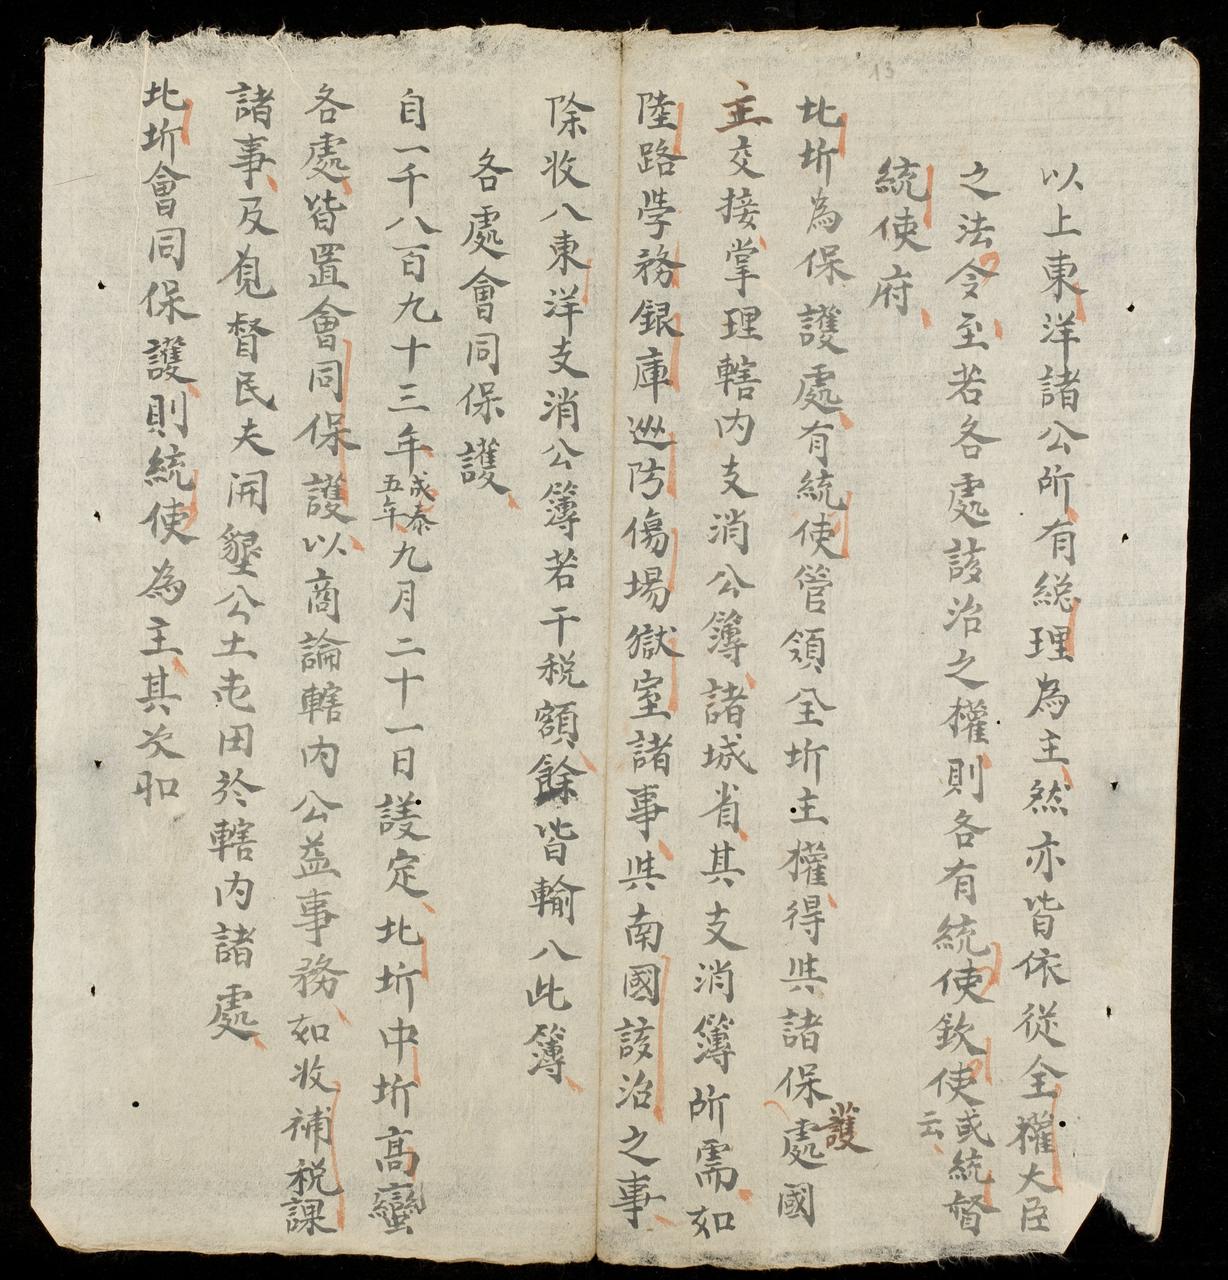 13
以上東洋諸公所有総理為主然亦皆依從全權大臣
之法令至若各處該治之權則各有統使欽使或統督云
統使府
北圻為保護處有統使管領全圻主權得與諸保護處國
主交接掌理轄内支消公簿諸城省其支消簿所需如
陸路學務銀庫巡防傷場獄室諸事與南國該治之事
除收入東洋支消公簿若干税額餘皆輸入此簿
各處會同保護
自一千八百九十三年成泰五年九月二十一日議定北圻中圻高蠻
各處皆置會同保護以商論轄内公益事務如收補税課
諸事及覓督民夫開墾公土屯田於轄内諸處
北圻會同保護則統使為主其次和